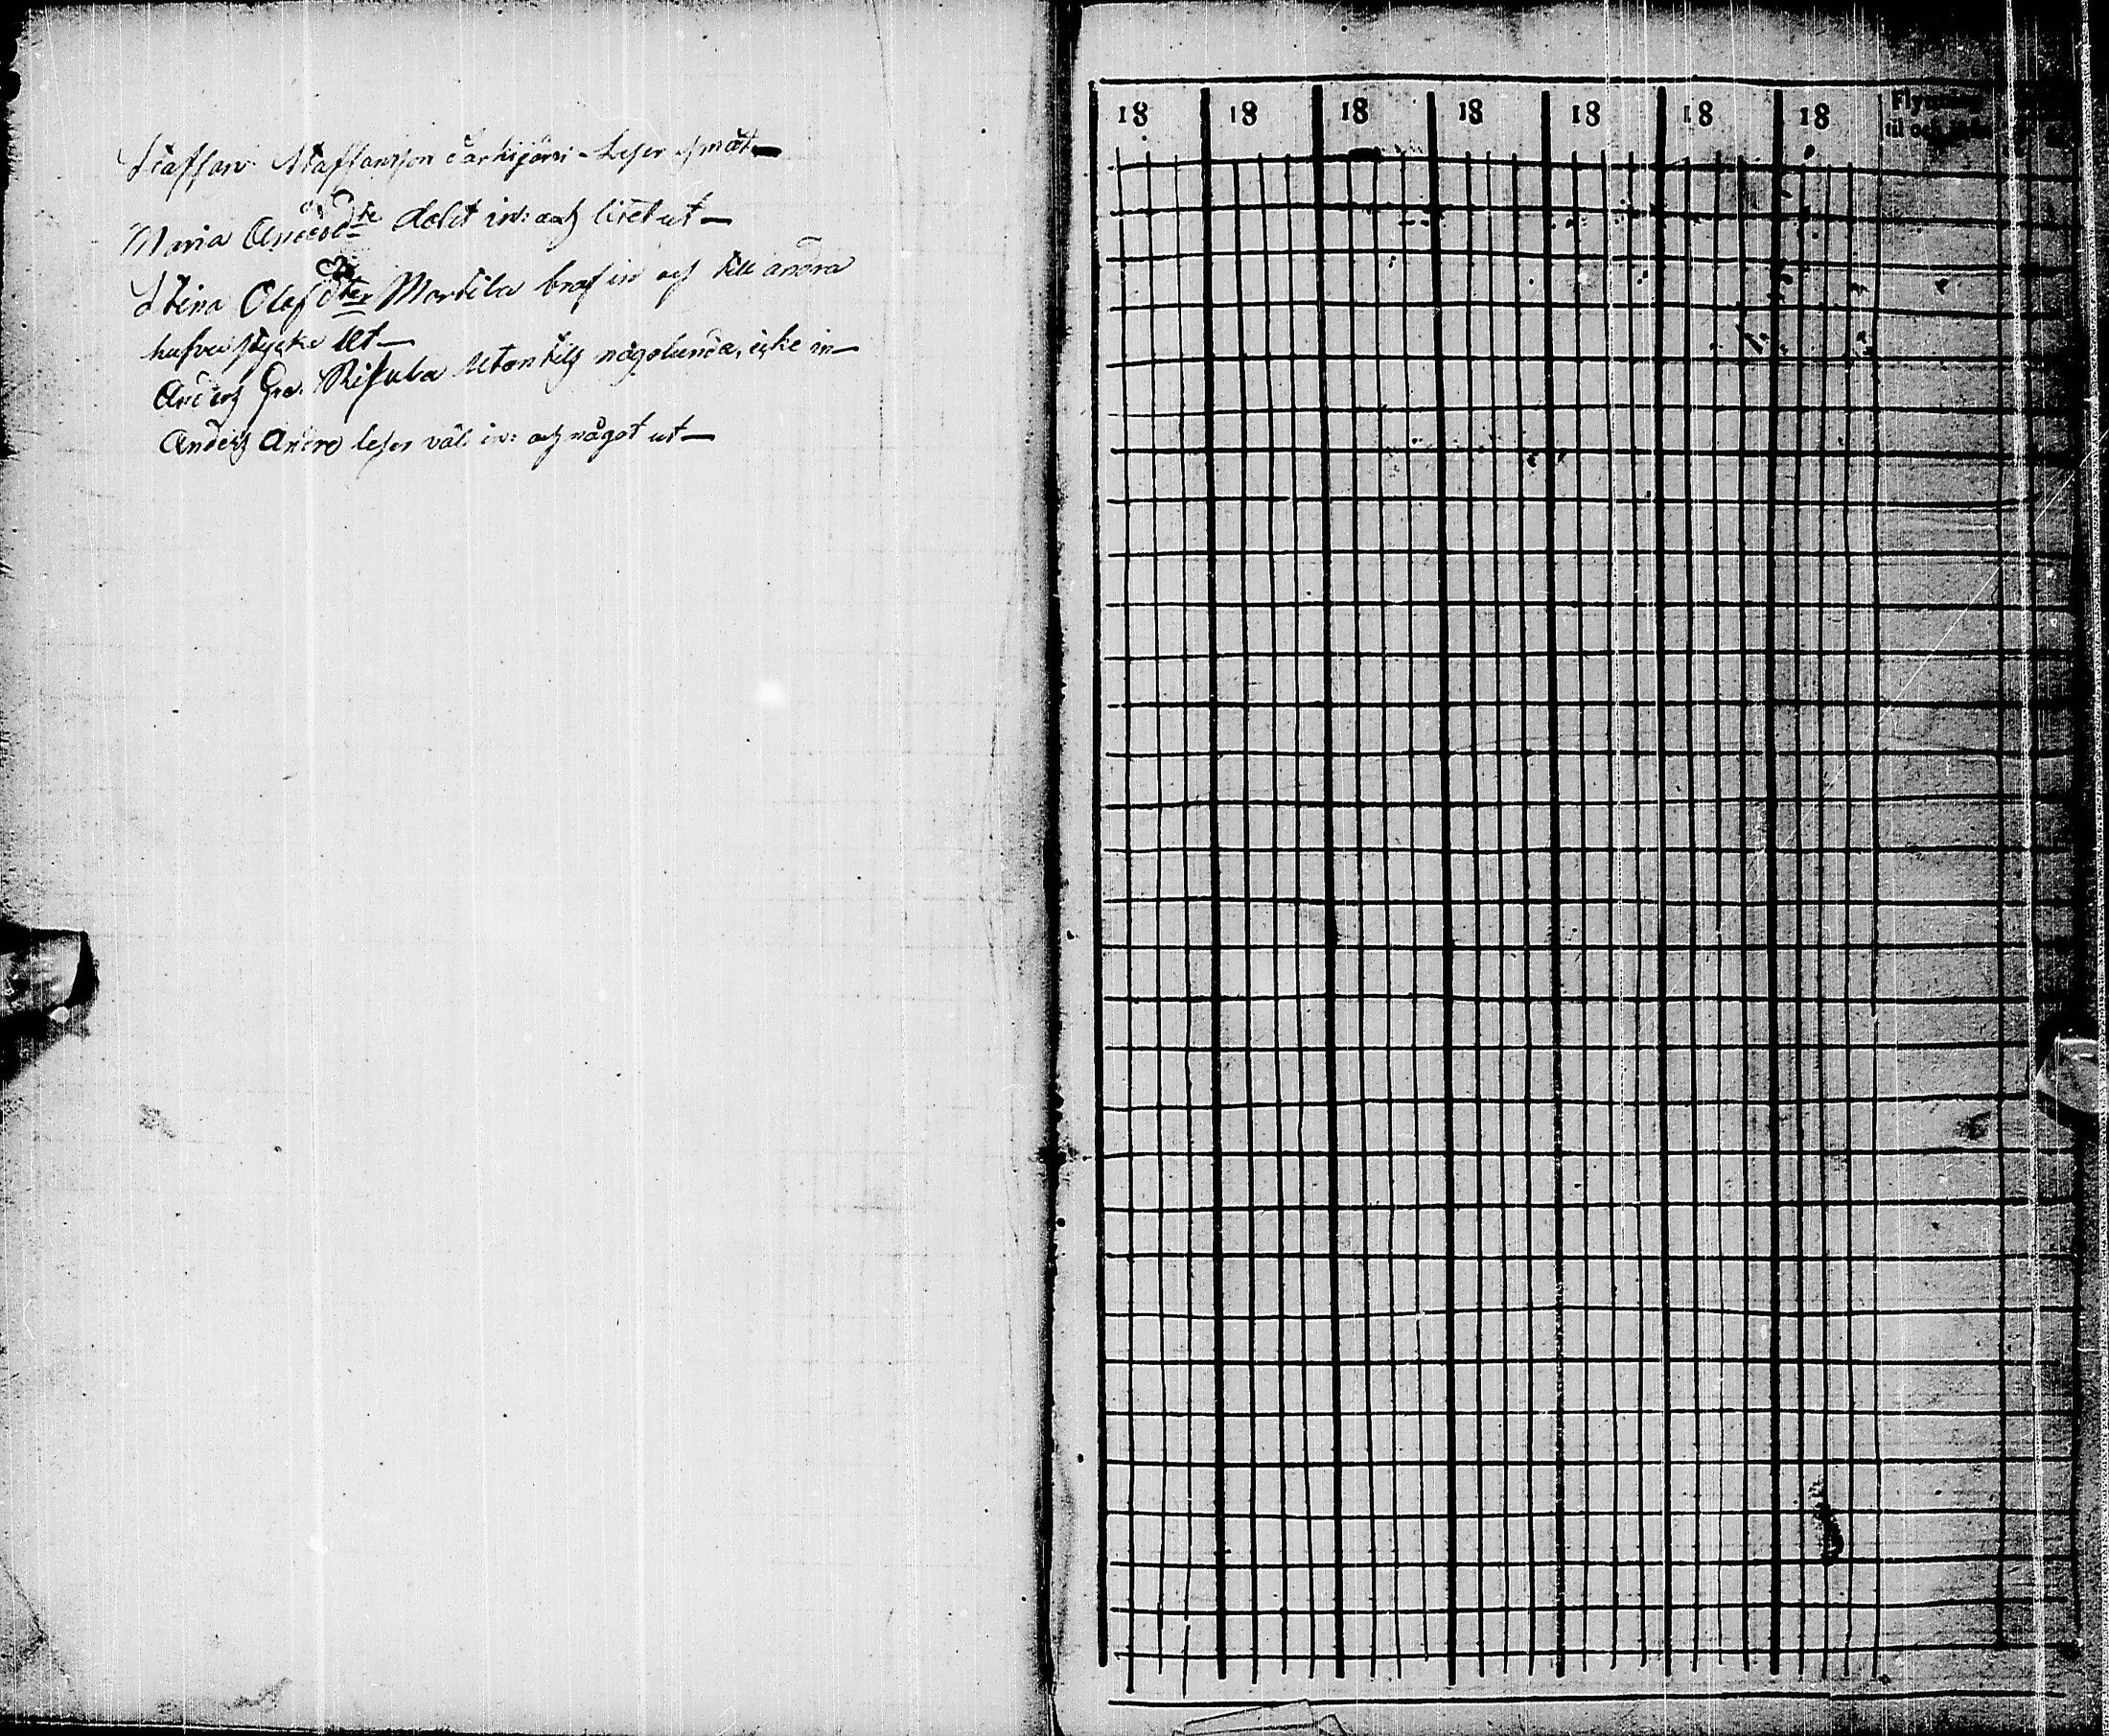 Staffan Staffansson Särkijärvi - Läser småt
Maria Andersdtr dålit in: och litet ut
Stina Olefsdter Martila braf in och till andra
hufvustycke Ut
Anders Gre. Risula Utantils någolunda, icke in
Anders Andre läser väl in: och något ut
18 18 18 18 18 18 18
til och